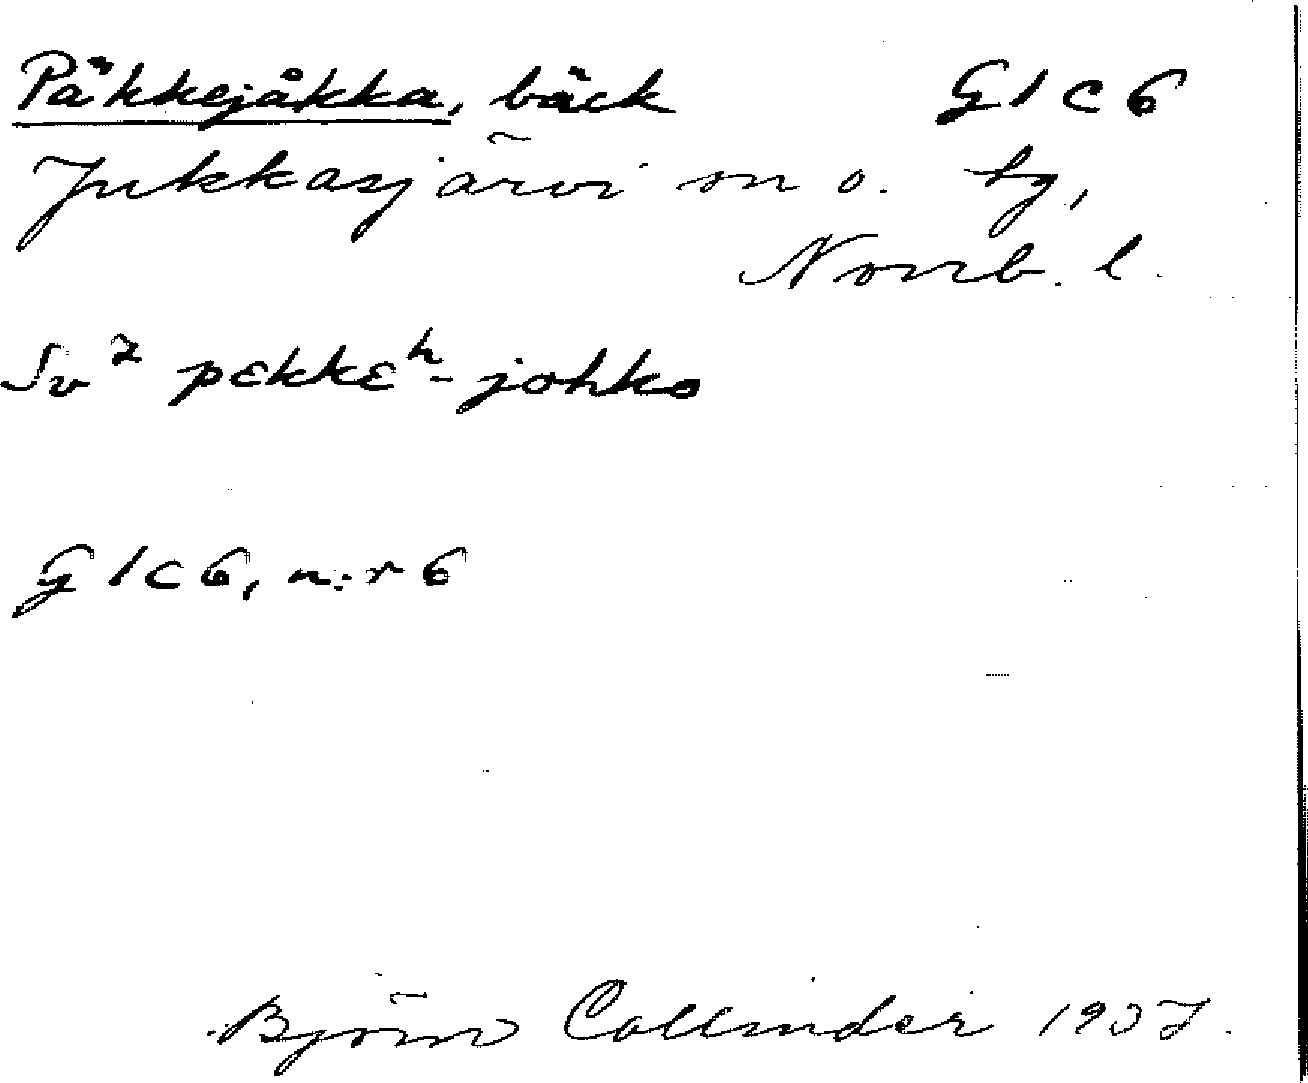 Päkkejåkka, bäck G1c6
Jukkasjärvi sn o. tg,
Norrb. l.
Sv² pεkkεʰ-johko
G1c6, n:r 6
Björn Collinder 1937.